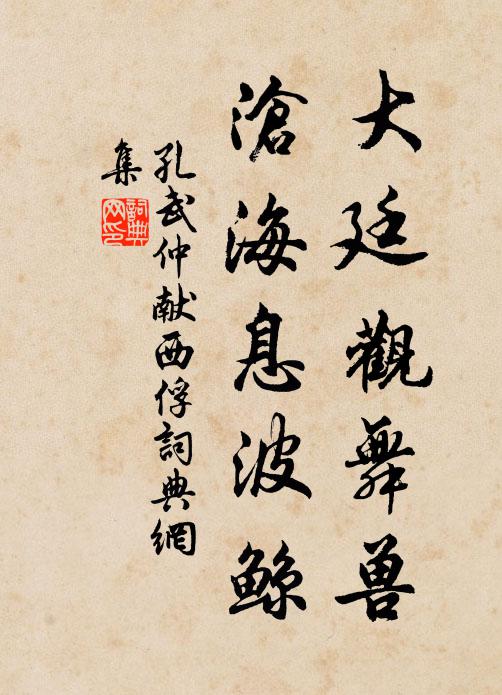 大廷觀舞兽
滄海息波鲸
孔武仲献西俘詞典網
集
詞典
网印